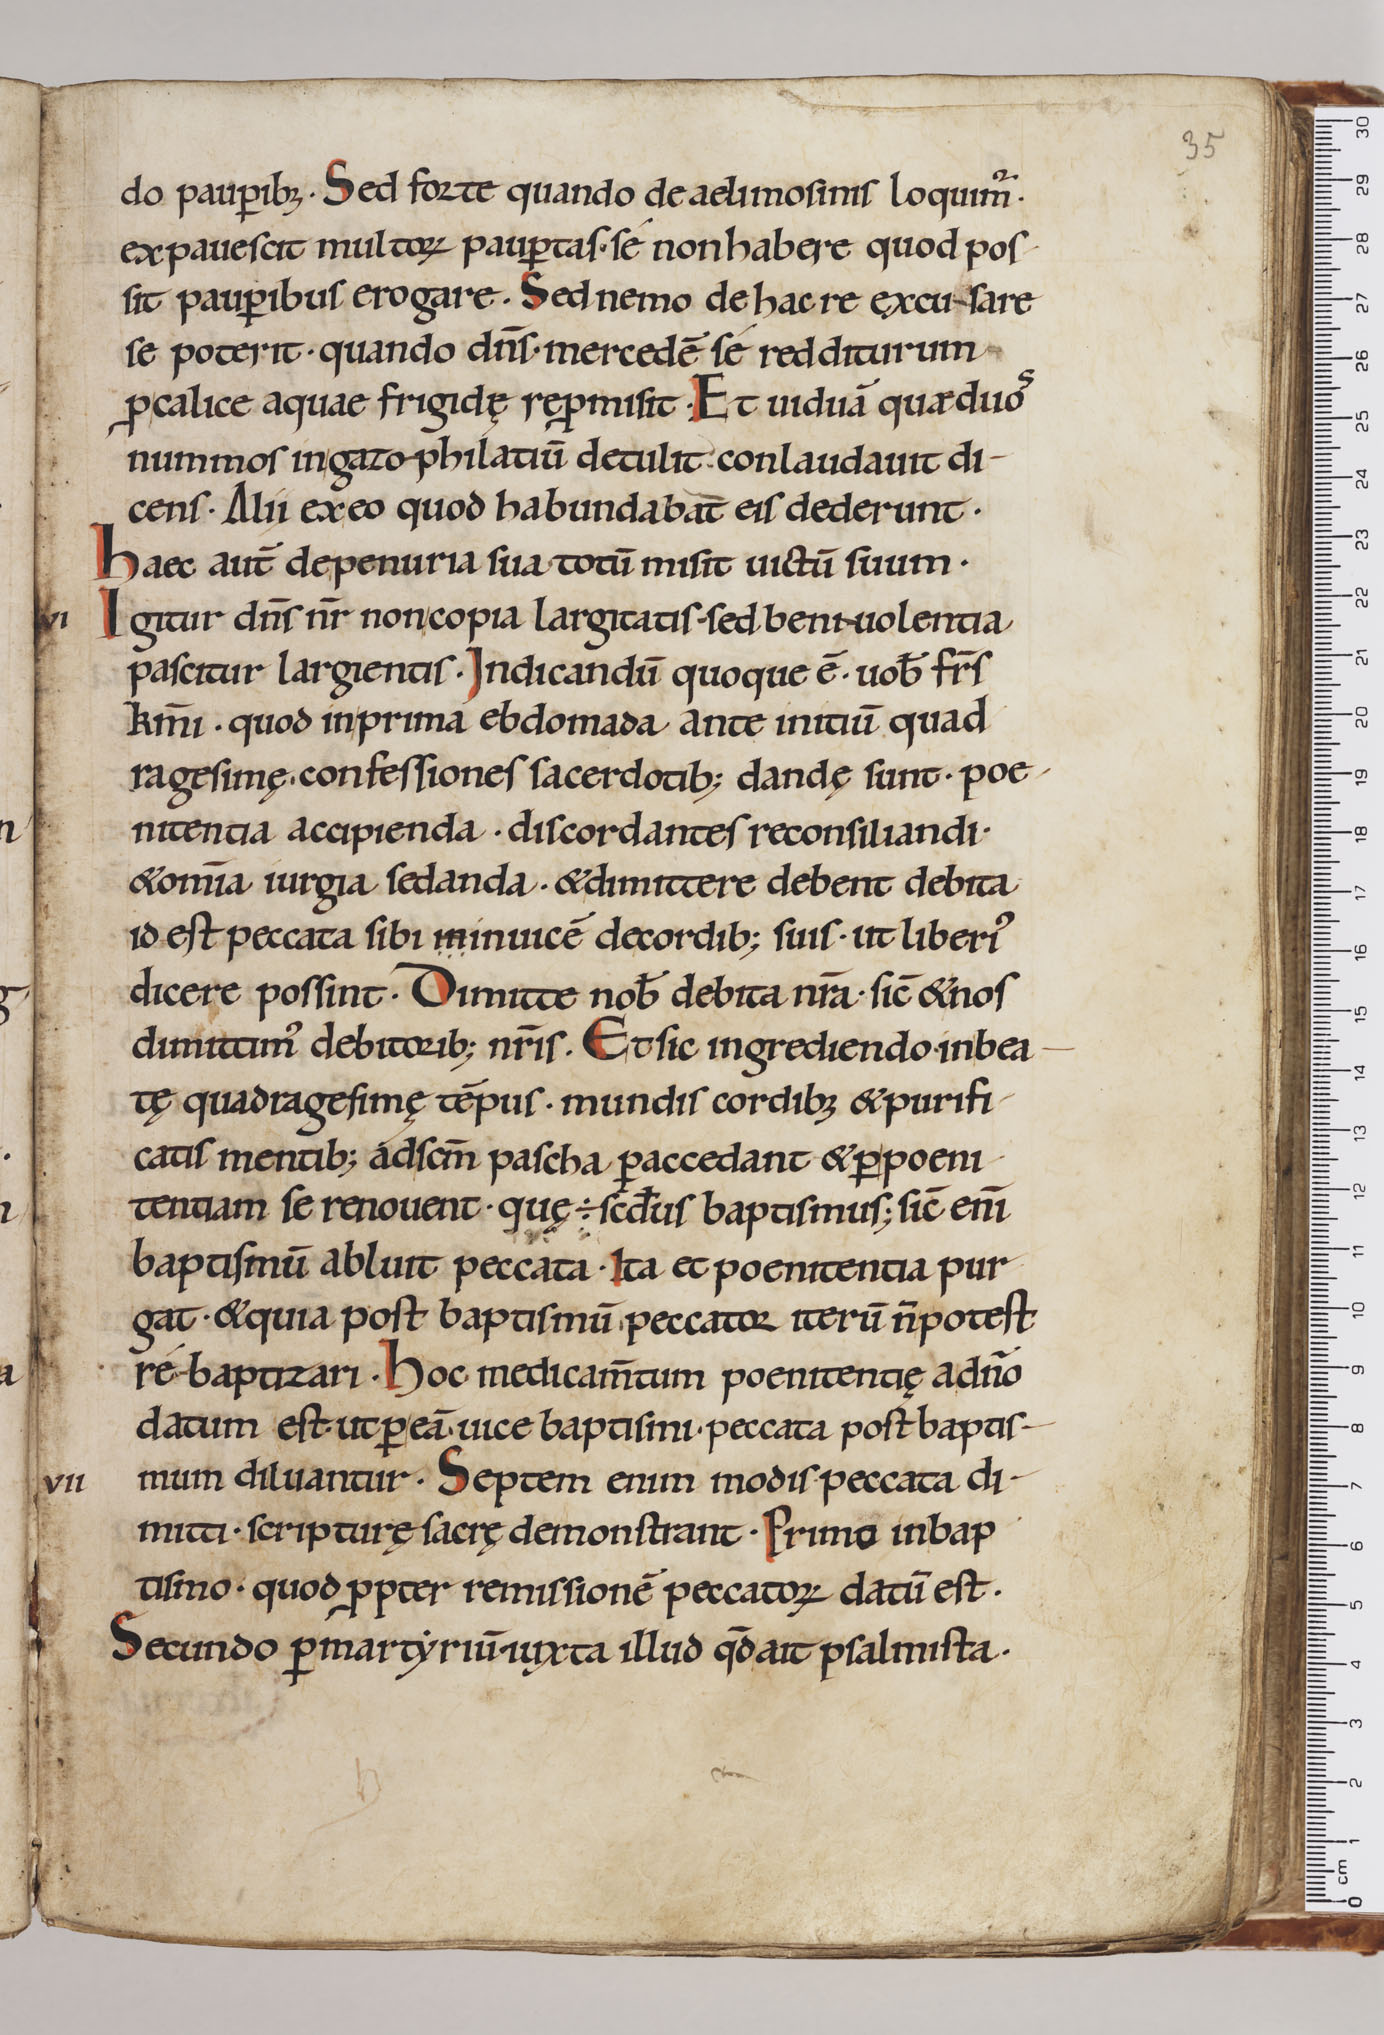 35
do paup̱ibꝫ · Sed forte quando de aelimosinis loquim̄ ·
expauescit multoꝝ paup̱tas · sé non habere quod pos-
sit paup̱ibus erogare · Sed nemo de hac re ęxcusare
se poterit · quando dn̄s · mercedē sé redditurum
ꝑ calice aquae frigidę reꝓmisit · Et uiduā quae duos
nummos in gazophilatiū detulit · conlaudauit di-
cens · Alii ex eo quod habundabat̄ eis dederunt ·
Haec aut̄ de penuria sua totū misit uictū suum ·
vi Igitur dn̄s nr̄ non copia largitatis · sed beniuolentia
pascitur largientis · Indicandū quoque ē · uob̄ fr̄s
km̄i · quod in prima ebdomada ante initiū quad
ragesimę · confessiones sacerdotib; dandę sunt · poe-
nitentia accipienda · discordantes reconsiliandi ·
& om̄ia iurgia sedanda · & dimittere debent debita
id est peccata sibi ininuicē de cordib; suis · ut liberiꝰ
dicere possint · Dimitte nob̄ debita nr̄a · sic̄ & nos
dimittimꝰ debitorib; nr̄is · Et sic ingrediendo in bea-
tę quadragesimę tēpus · mundis cordibꝫ & purifi-
catis mentib; ad sc̄m pascha ꝑ accedant & ꝑ poeni
tentiam se renouent · quę ÷ scd̄us baptismus; sic̄ eni̅
baptismū abluit peccata · Ita et poenitentia pur-
gat · & quia post baptismū peccator iterū n̄ potest
ré baptizari · Hoc medicam̄tum poenitentię a dn̄o
datum est · ut ꝑ eā uice baptismi · peccata post baptis-
vii mum diluantur · Septem enim modis peccata di-
mitti · scripturę sacrę demonstrant · Primo in bap
tismo · quod ꝓpter remissionē peccatoꝝ datū est ·
Secundo ꝑ martyriū · iuxta illud qd̄ ait psalmista ·